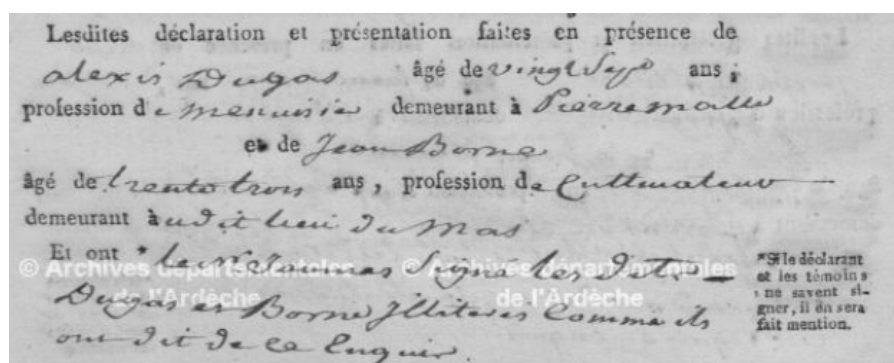 Lesdites déclaration et présentation faites en présence de
alexis Dugas âgé de vingt Sept ans ;
profession de menuisie demeurant à Pierremalle
et de Jean Borne
âgé de trente trois ans , profession de Cultivateur
demeurant à udit lieu du mas
Et ont * Signé les dits
Dugas et Borne Illiteres Comme ils
ont dit de ce Enquir.
*Si le déclarant
et les témoins
ne savent si-
gner, il en sera
fait mention.
© Archives départementales
de l'Ardèche
© Archives départementales
de l'Ardèche